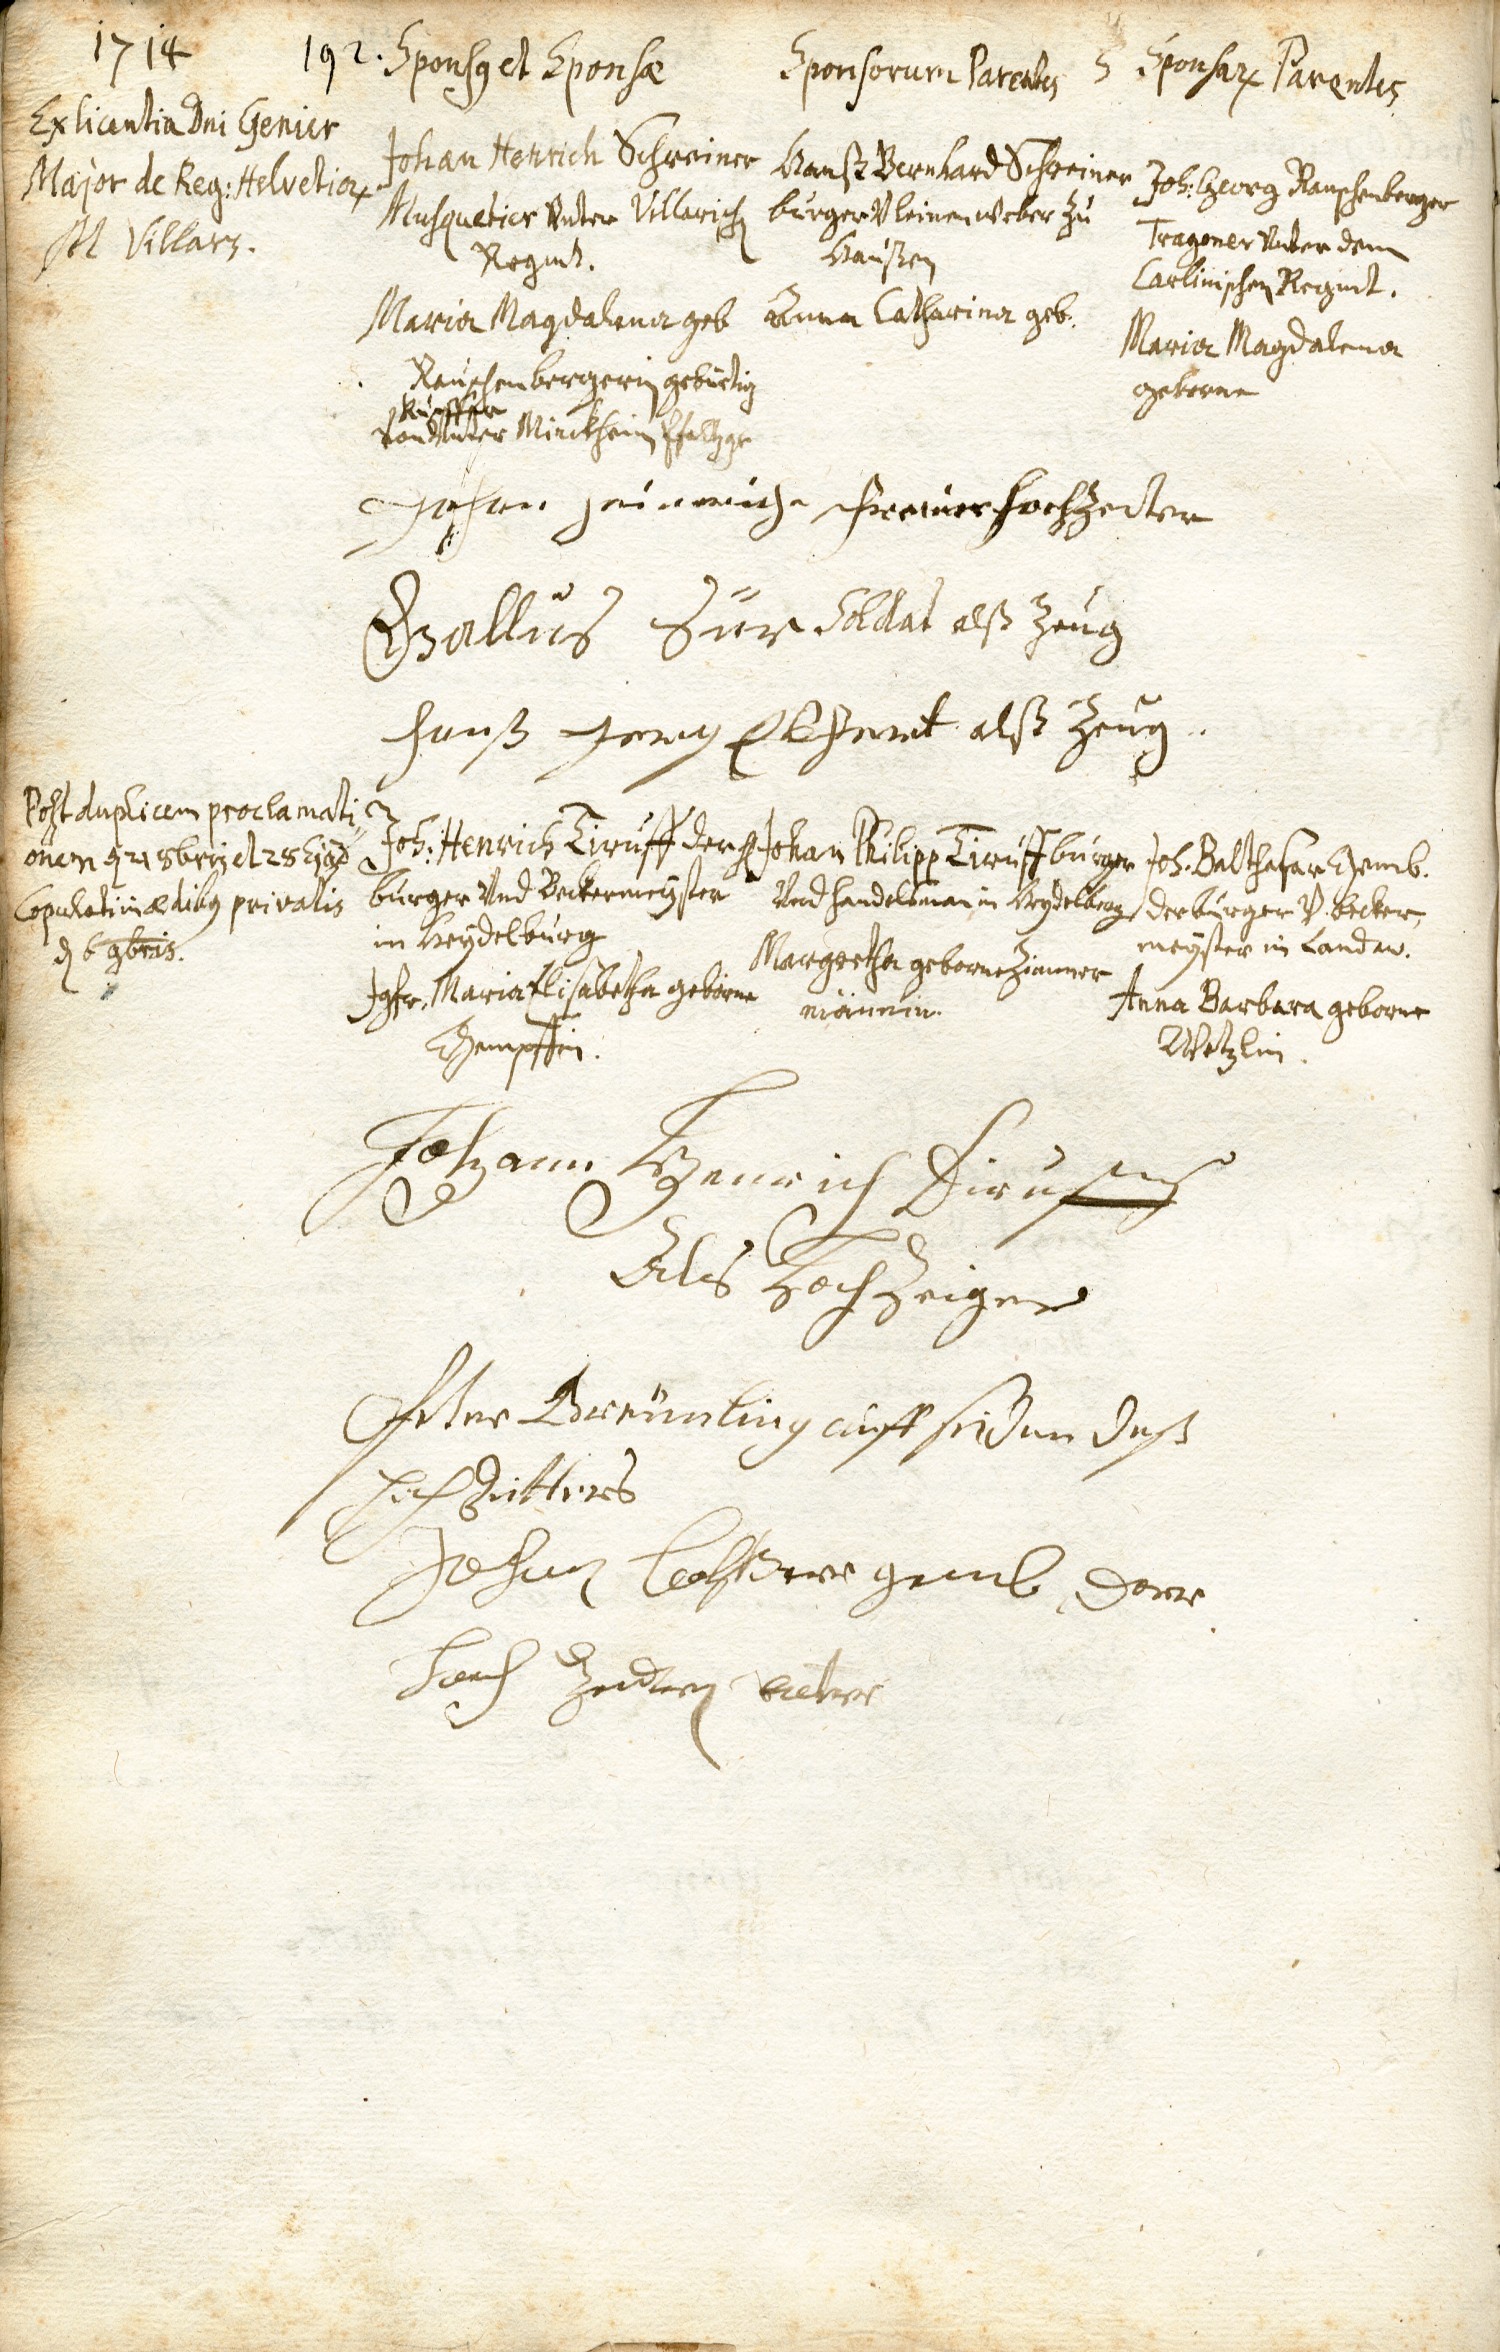 1714
192. Sponsg et Sponsæ
Sponsorum Parentes
Sponsar Parentes
Ex licentia Dni Genier
Major de Reg: Helvetior
M Villars.
Johan Henrich Schreiner
Musquetier Unter Villarisch
Regmt.
Maria Magdalena geb
Rauschenbergerin gebürtig
Minckheim
Hanß Bernhard Schreiner
burger V leinenweber zu
Haußen
Anna Catharina geb.
Joh: Georg Rauschenberger
Tragoner Unter dem
Carlinischen Regmt.
Maria Magdalena
geborne
Johan Heinrich Schreiner Hochzeiter
Gallus Sür Soldat alß Zeug
Hanß Georg alß Zeug
Post duplicem proclamati,,
onem 21 8bris et 28 ejusd
Copulati in ædibg privatis
d 6 9bris.
Joh: Henrich Tiruff der
burger Und Beckermeyster
in Heydelburg
Jgfr. Maria Elisabetha geborne
Johan Philipp Tiruff burger
Und handelsman in Heydelberg
Margretha geborne Zimmer
männin.
Joh. Balthasar Gemb.
der burger V. becker,
meyster in Landau.
Anna Barbara geborne
Wetzlin.
Johann Henrich Tiruff
Als Hochzeiger
Peter Breünling auff seiden deß
Hochzeitters
Johann gemb